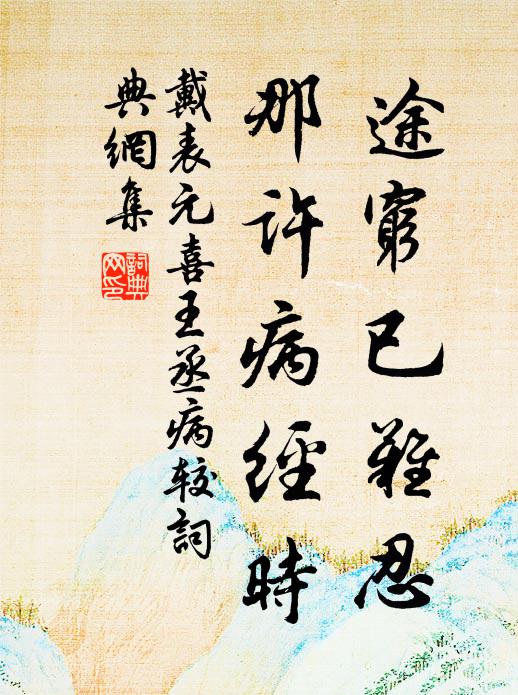 途窮已難忍
那許病經時
戴表元喜王丞病較詞
典網集
詞典網印